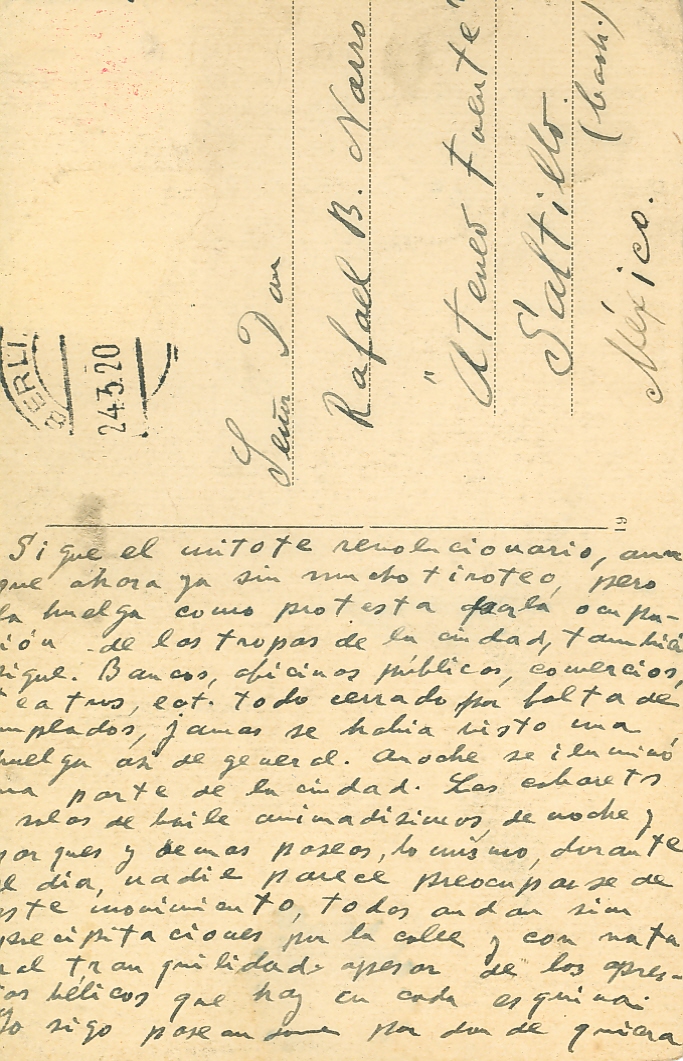 BERLI
24.3.20
Señor Don
Rafael B. Narro
"Ateneo Fuente"
Saltillo.
(Coah.)
México.
19
Sigue el mitote revolucionario, aun
que ahora ya sin mucho tiroteo, pero
la huelga como protesta la ocupa-
ión de las tropas de la ciudad, tambié
sigue. Bancos, oficinas públicas, comercios,
teatros, ect. todo cerrado por falta de
mpleados, jamas se habia visto una
huelga asi de general. Anoche se iluminó
na parte de la ciudad. Los cabarets
salas de baile animadisimos, de noche y
parques y demas paseos, lo mismo, durante
el dia, nadie parece preocuparse de
ste movimiento, todos andan sin
precipitaciones por la calle y con natu
ral tranquilidad apesar de los apres-
os bélicos que hay en cada esquina.
Yo sigo paseando por donde quiera